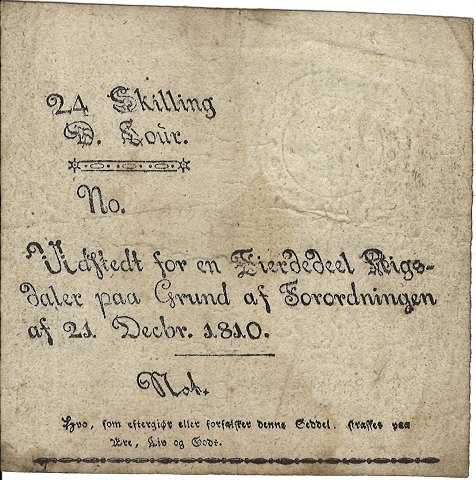 24 Skilling
D. Cour.
No.
Udstedt for en Fierdedeel Rigs-
daler paa Grund af Forordningen
af 21 Decbr. 1810.
Not.
Hvo, som eftergiør eller forfalsker denne Seddel, straffes paa
Ære, Liv og Gods.